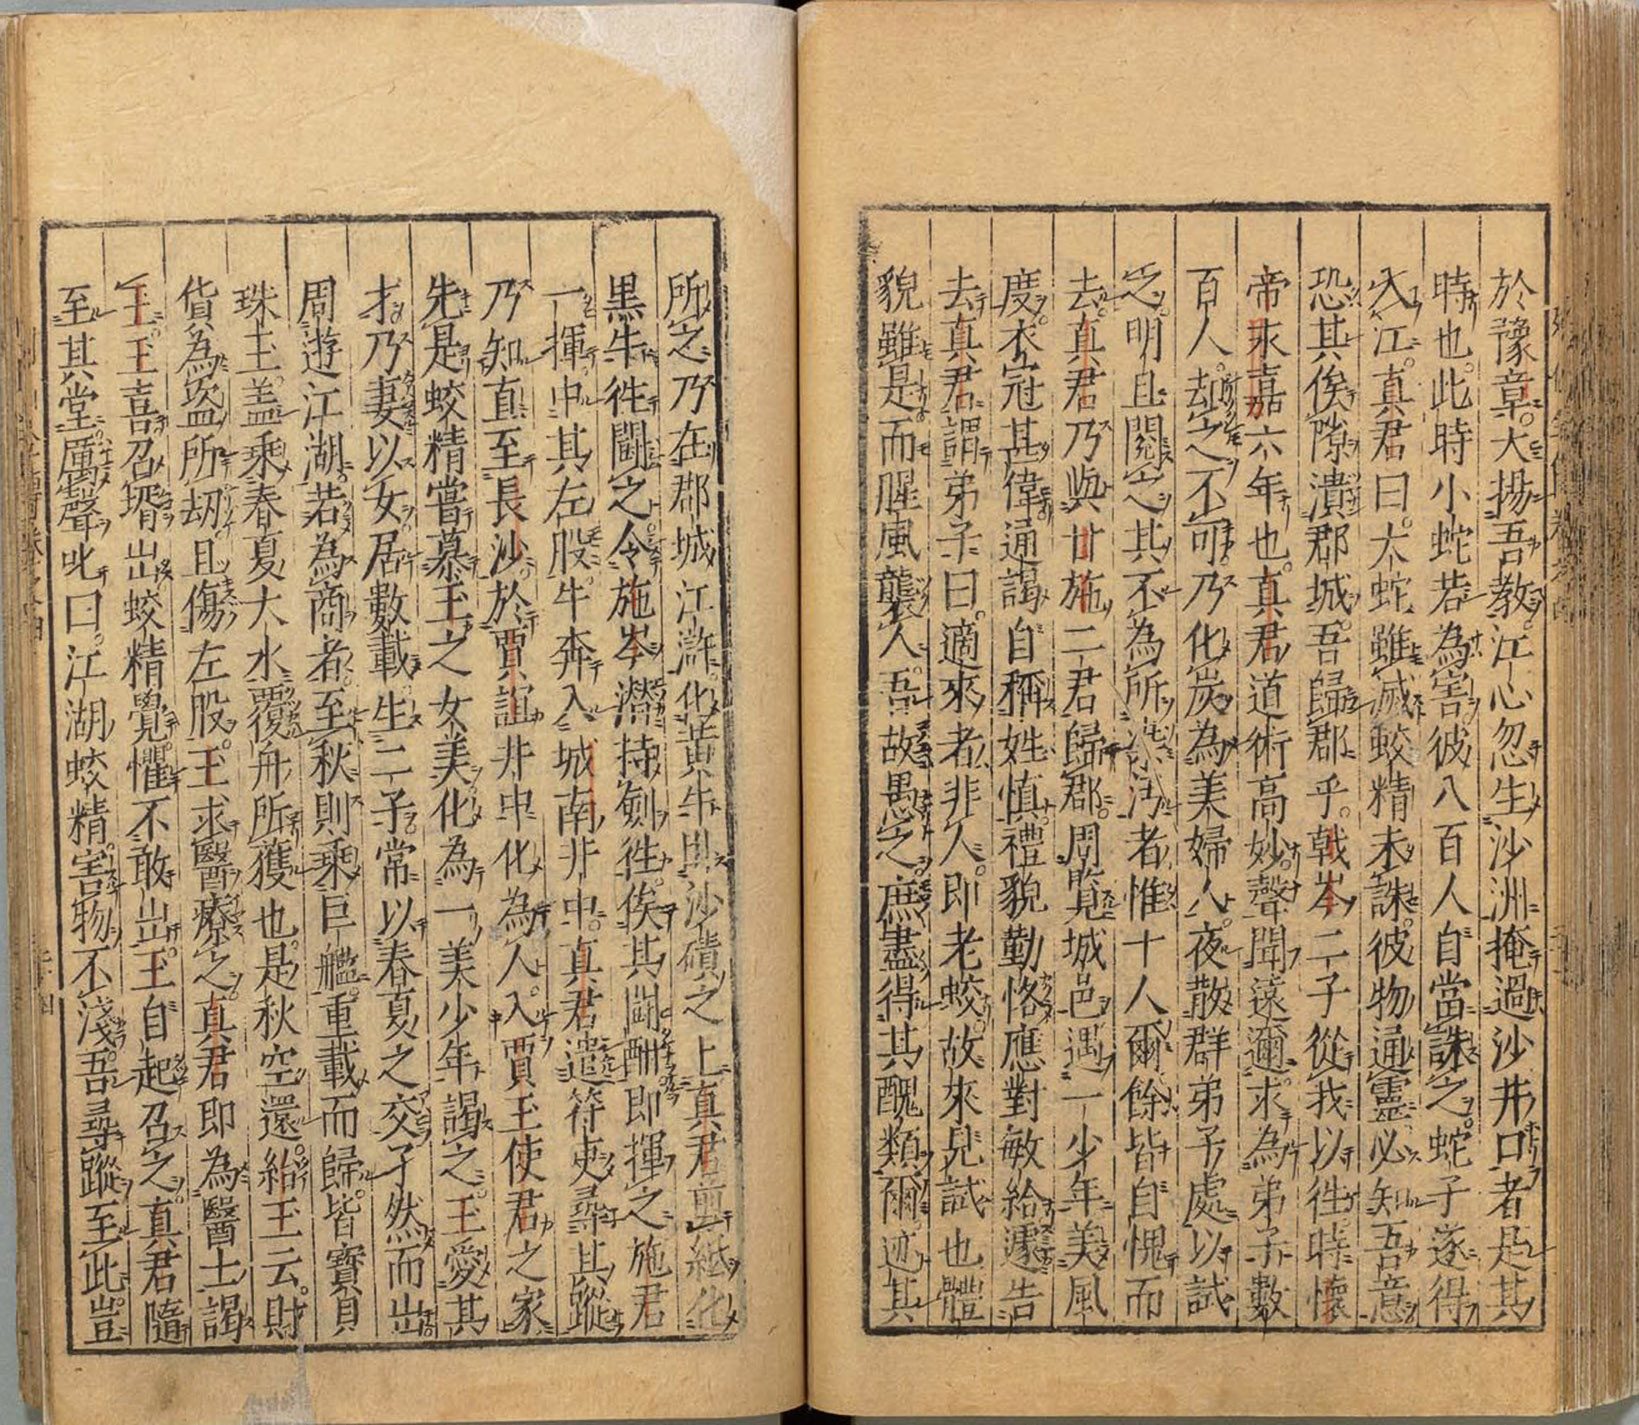 於豫章大揚吾教江心忽生沙洲掩過沙井口者是其
時也此時小蛇若為害彼八百人自當誅之蛇子遂得
入江真君曰大蛇雖滅蛟精未誅彼物通靈必知吾意
恐其俟隙潰郡城吾歸郡乎戟岑二子從我以徃時懷
帝永嘉六年也真君道術高妙聲聞遠邇求為弟子數
百人却之不可乃化炭為美婦人夜散群弟子處以試
之明旦閱之其不為所染汚者惟十人爾餘皆自愧而
去真君乃與甘施二君歸郡周覽城邑遇一少年美風
度衣冠甚偉通謁自稱姓慎禮貌勤恪應對敏給遽告
去真君謂弟子曰適來者非人即老蛟故來見試也體
貌雖是而腥風襲人吾故愚之庶盡得其醜類爾迹其
所之乃在郡城江滸化黃牛臥沙磧之上真君剪紙化
黒牛徃鬪之令施岑潛持劍徃俟其鬪酣即揮之施君
一揮中其左股牛奔入城南井中真君遣符吏尋其蹤
乃知直至長沙於賈誼井中化為人入賈玉使君之家
先是蛟精嘗慕玉之女美化為一美少年謁之玉愛其
才乃妻以女居數載生二子常以春夏之交孑然而出
周遊江湖若為商者至秋則乘巨艦重載而歸皆寶貝
珠玉盖乘春夏大水覆舟所獲也是秋空還紿玉云財
貨為盗所刧且傷左股玉求醫療之真君即為醫士謁
玉玉喜召壻出蛟精覺懼不敢出玉自起召之真君隨
至其堂厲聲叱曰江湖蛟精害物不淺吾尋蹤至此豈